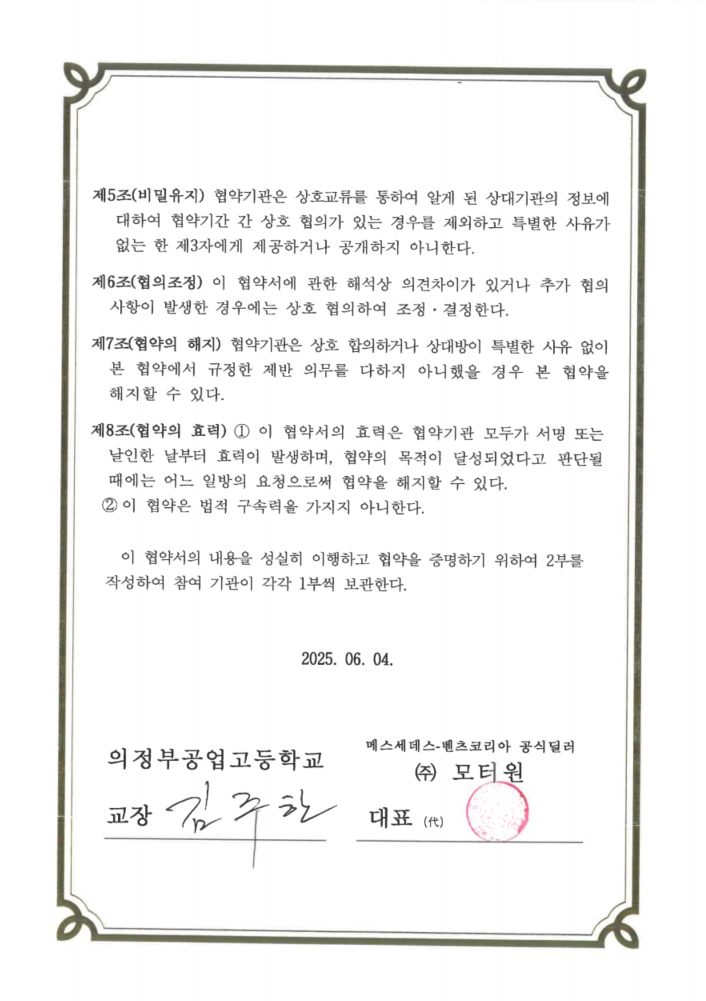 제5조(비밀유지) 협약기관은 상호교류를 통하여 알게 된 상대기관의 정보에
대하여 협약기간 간 상호 협의가 있는 경우를 제외하고 특별한 사유가
없는 한 제3자에게 제공하거나 공개하지 아니한다.
제6조(협의조정) 이 협약서에 관한 해석상 의견차이가 있거나 추가 협의
사항이 발생한 경우에는 상호 협의하여 조정·결정한다.
제7조(협약의 해지) 협약기관은 상호 합의하거나 상대방이 특별한 사유 없이
본 협약에서 규정한 제반 의무를 다하지 아니했을 경우 본 협약을
해지할 수 있다.
제8조(협약의 효력) ① 이 협약서의 효력은 협약기관 모두가 서명 또는
날인한 날부터 효력이 발생하며, 협약의 목적이 달성되었다고 판단될
때에는 어느 일방의 요청으로써 협약을 해지할 수 있다.
② 이 협약은 법적 구속력을 가지지 아니한다.
이 협약서의 내용을 성실히 이행하고 협약을 증명하기 위하여 2부를
작성하여 참여 기관이 각각 1부씩 보관한다.
2025. 06. 04.
의정부공업고등학교
교장 김주한
메스세데스-벤츠코리아 공식딜러
㈜ 모터원
대표 (代)